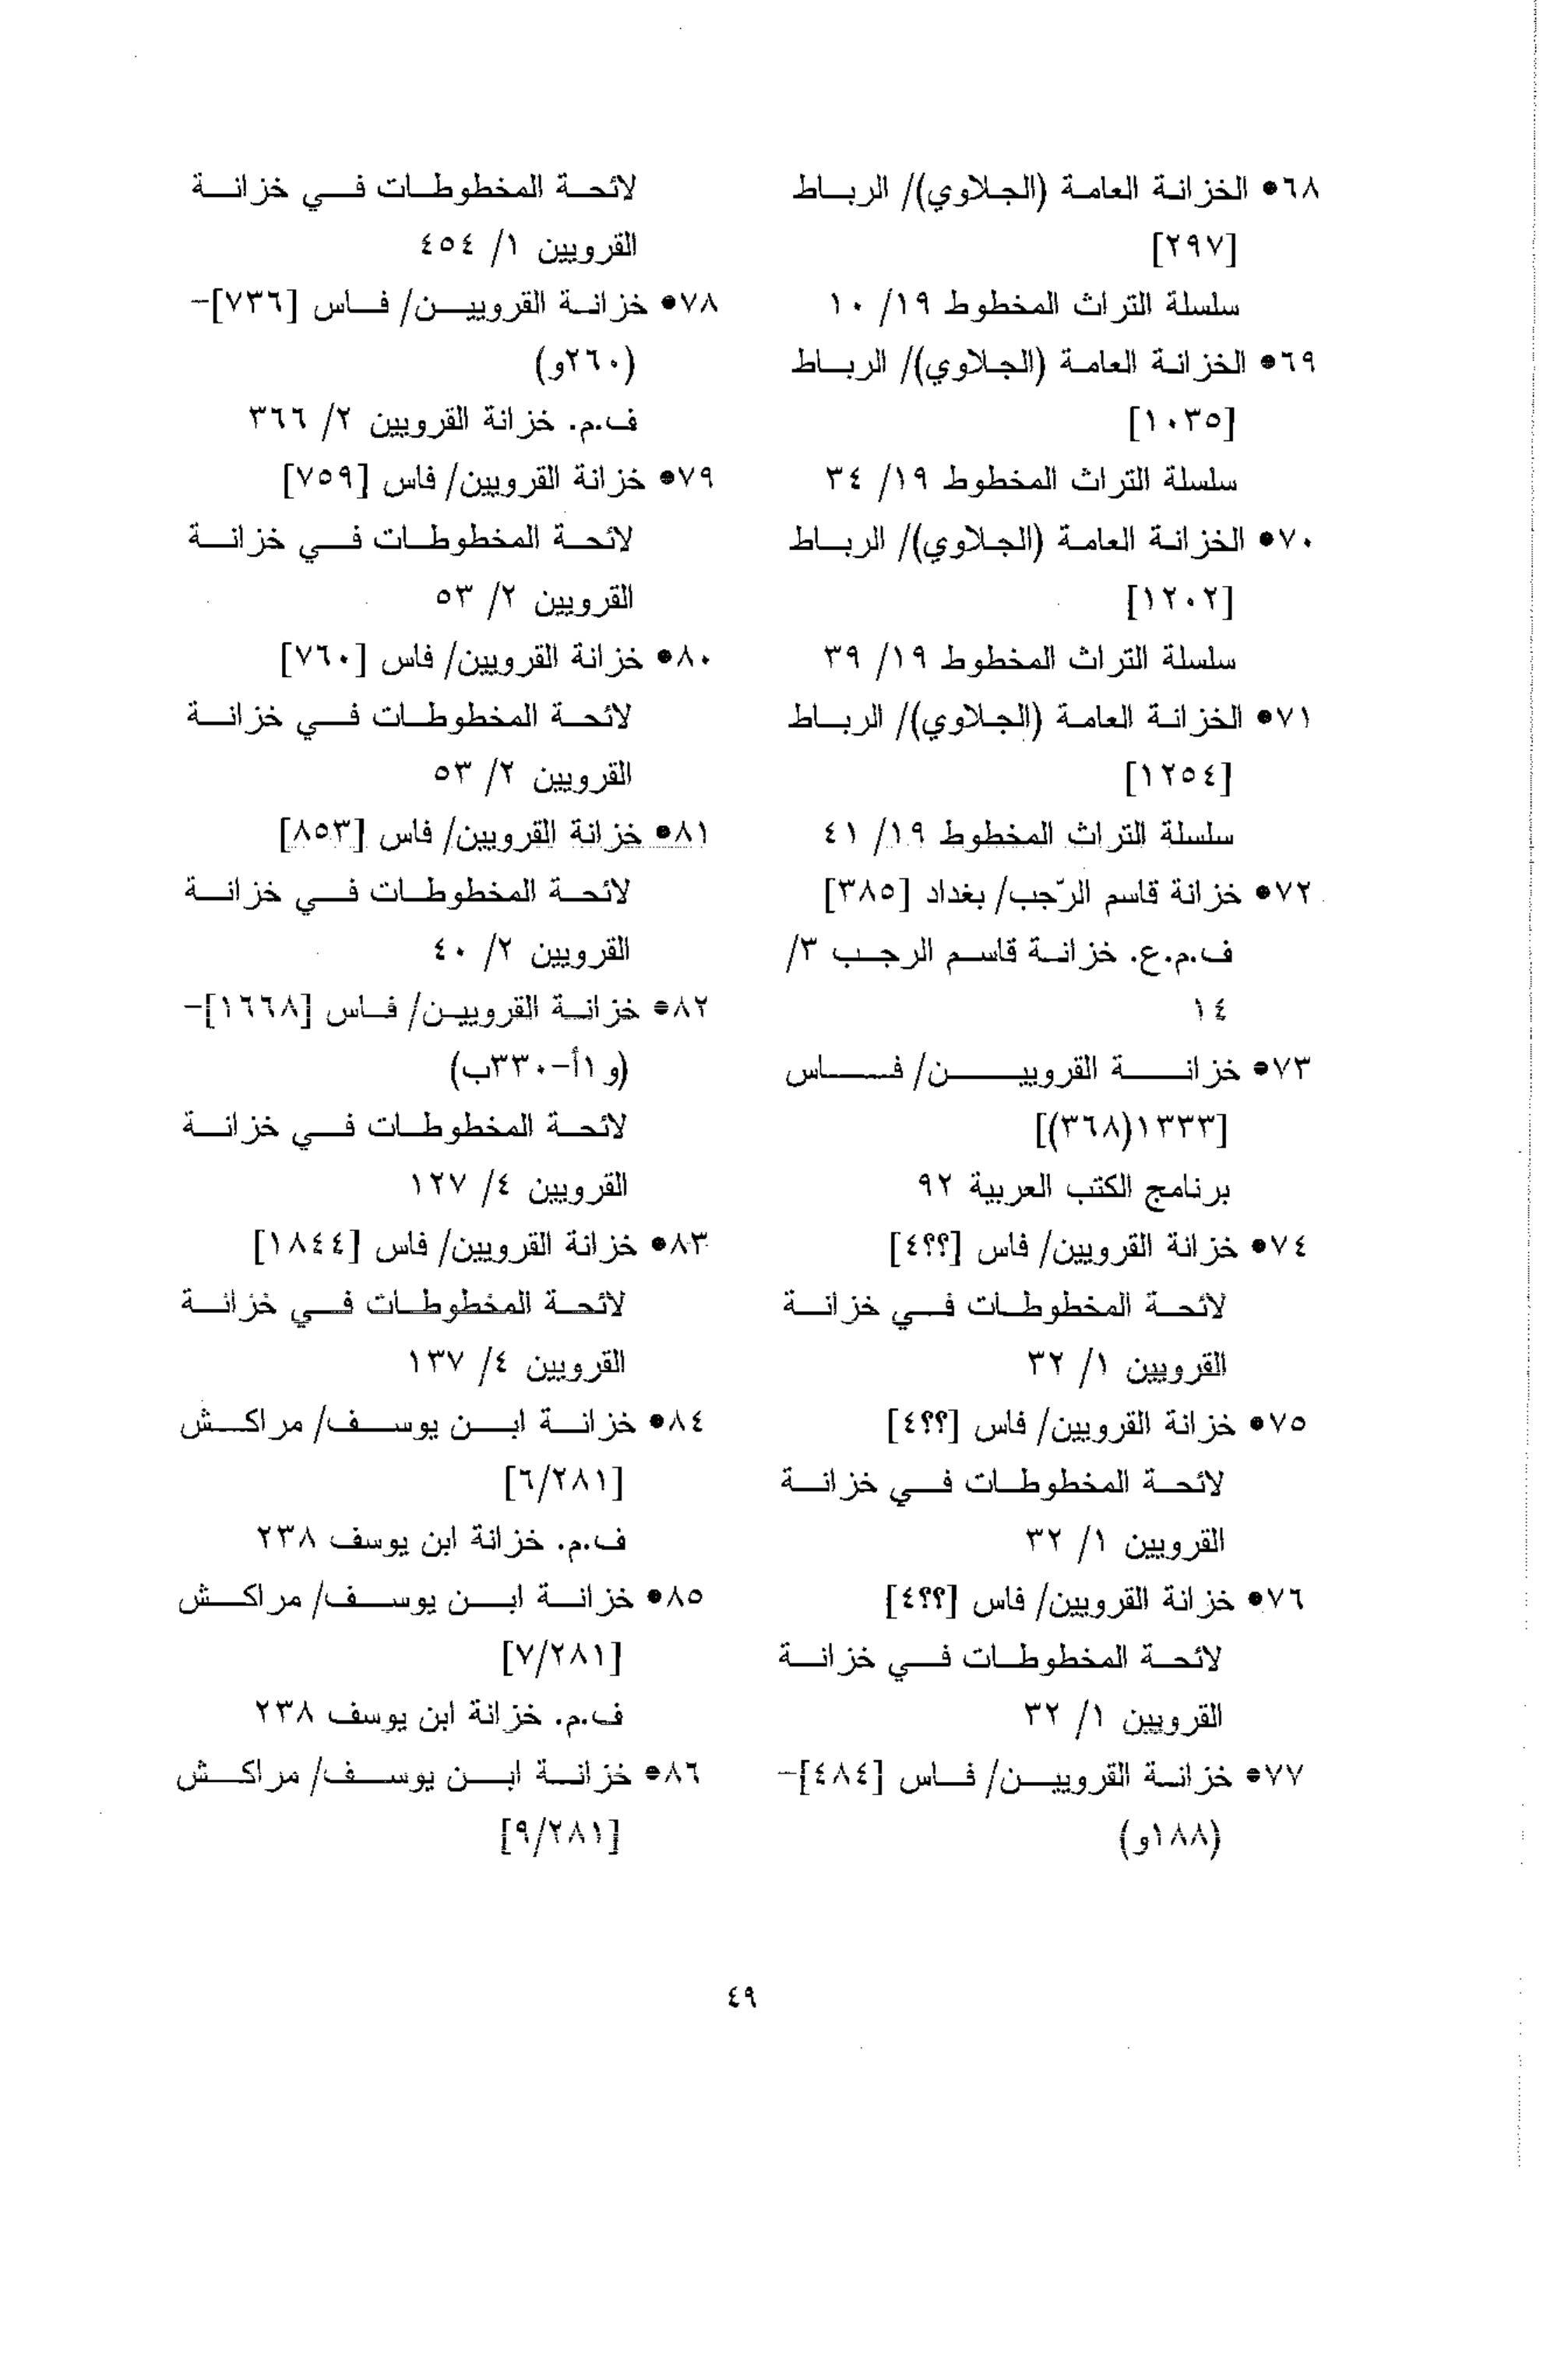 ٦٨• الخزانة العامة (الجلاوي)/ الرباط
[٢٩٧]
سلسلة التراث المخطوط ١٩/ ١٠
٦٩• الخزانة العامة (الجلاوي)/ الرباط
[١٠٣٥]
سلسلة التراث المخطوط ١٩/ ٣٤
٧٠• الخزانة العامة (الجلاوي)/ الرباط
[١٢٠٢]
سلسلة التراث المخطوط ١٩/ ٣٩
٧١• الخزانة العامة (الجلاوي)/ الرباط
[١٢٥٤]
سلسلة التراث المخطوط ١٩/ ٤١
٧٢• خزانة قاسم الرّجب/ بغداد [٣٨٥]
ف.م.ع. خزانة قاسم الرجب ٣/
١٤
٧٣• خزانة القرويين/ فاس
[١٣٣٣(٣٦٨)]
برنامج الكتب العربية ٩٢
٧٤• خزانة القرويين/ فاس [٤؟؟]
لائحة المخطوطات في خزانة
القرويين ١/ ٣٢
٧٥• خزانة القرويين/ فاس [٤؟؟]
لائحة المخطوطات في خزانة
القرويين ١/ ٣٢
٧٦• خزانة القرويين/ فاس [٤؟؟]
لائحة المخطوطات في خزانة
القرويين ١/ ٣٢
٧٧• خزانة القرويين/ فاس [٤٨٤]-
(١٨٨و)
لائحة المخطوطات في خزانة
القرويين ١/ ٤٥٤
٧٨• خزانة القرويين/ فاس [٧٣٦]-
(٢٦٠و)
ف.م. خزانة القرويين ٢/ ٣٦٦
٧٩• خزانة القرويين/ فاس [٧٥٩]
لائحة المخطوطات في خزانة
القرويين ٢/ ٥٣
٨٠• خزانة القرويين/ فاس [٧٦٠]
لائحة المخطوطات في خزانة
القرويين ٢/ ٥٣
٨١• خزانة القرويين/ فاس [٨٥٣]
لائحة المخطوطات في خزانة
القرويين ٢/ ٤٠
٨٢• خزانة القرويين/ فاس [١٦٦٨]-
(و١أ-٣٣٠ب)
لائحة المخطوطات في خزانة
القرويين ٤/ ١٢٧
٨٣• خزانة القرويين/ فاس [١٨٤٤]
لائحة المخطوطات في خزانة
القرويين ٤/ ١٣٧
٨٤• خزانة ابن يوسف/ مراكش
[٦/٢٨١]
ف.م. خزانة ابن يوسف ٢٣٨
٨٥• خزانة ابن يوسف/ مراكش
[٧/٢٨١]
ف.م. خزانة ابن يوسف ٢٣٨
٨٦• خزانة ابن يوسف/ مراكش
[٩/٢٨١]
٤٩